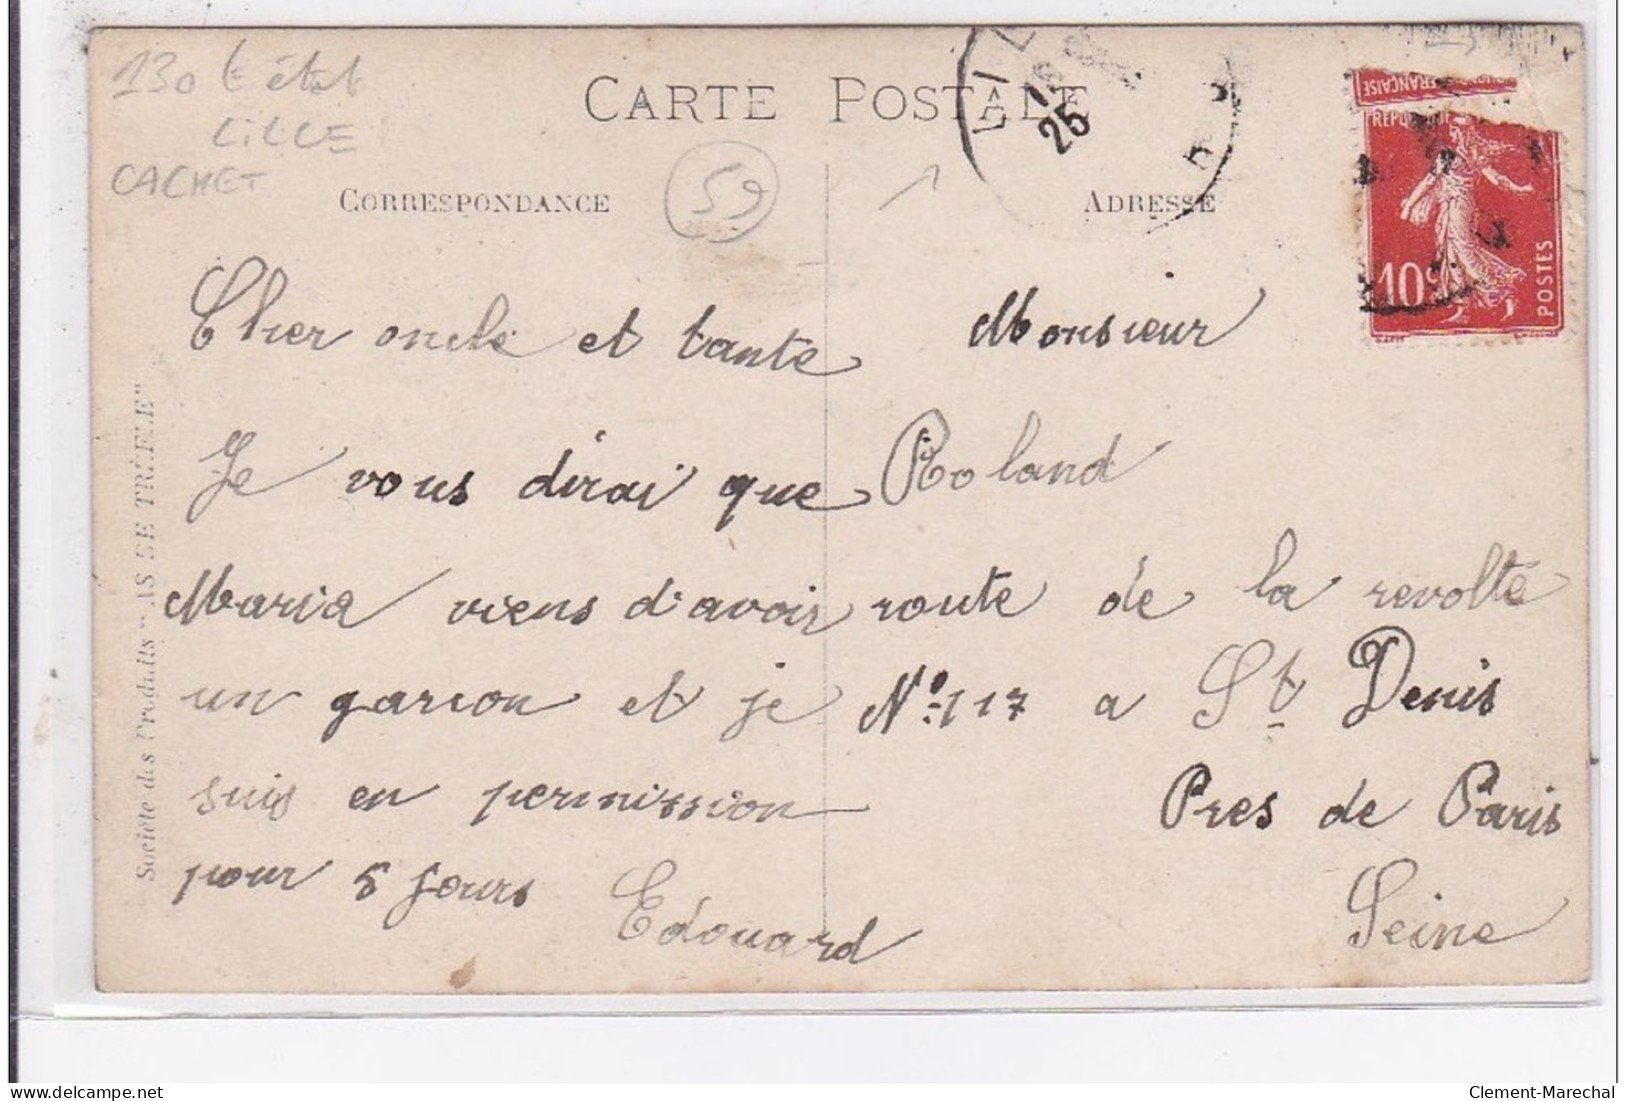 130 t état
LiLLE
CACHET
CARTE POSTALE
CORRESPONDANCE
59
ADRESSE
LIL
25
FRANÇAISE
REPUBLIQUE
10c
POSTES
Cher oncle et tante
Je vous dirai que
Maria viens d'avoir
un garcon et je
suis en permission
pour 8 jours Edouard
Monsieur
Roland
route de la revolte
No 117 a St Denis
Pres de Paris
Seine
Société des Produits "AS DE TRÈFLE"
delcampe.net
Clement-Marechal